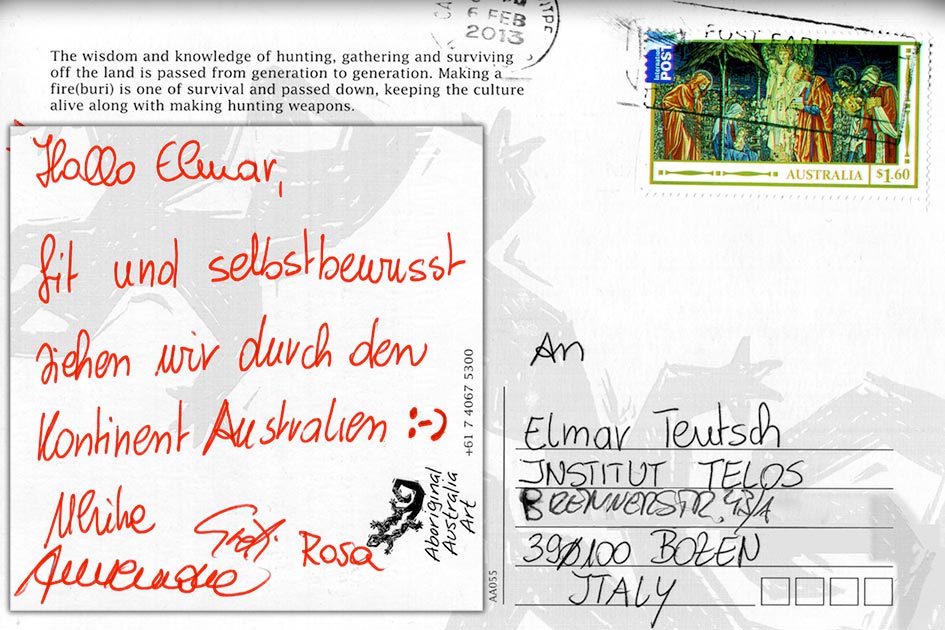 6 FEB
2013
POST EARL
The wisdom and knowledge of hunting, gathering and surviving
off the land is passed from generation to generation. Making a
fire(buri) is one of survival and passed down, keeping the culture
alive along with making hunting weapons.
International
POST
AUSTRALIA $1.60
Hallo Elmar,
fit und selbstbewusst
ziehen wir durch den
Kontinent Australien :-)
Ulrike
Rosa
Annemarie
+61 7 4067 5300
Aboriginal
Australia
Art
AA055
An
Elmar Teutsch
INSTITUT TELOS
BRENNERSTR. 43/A
39100 BOZEN
ITALY